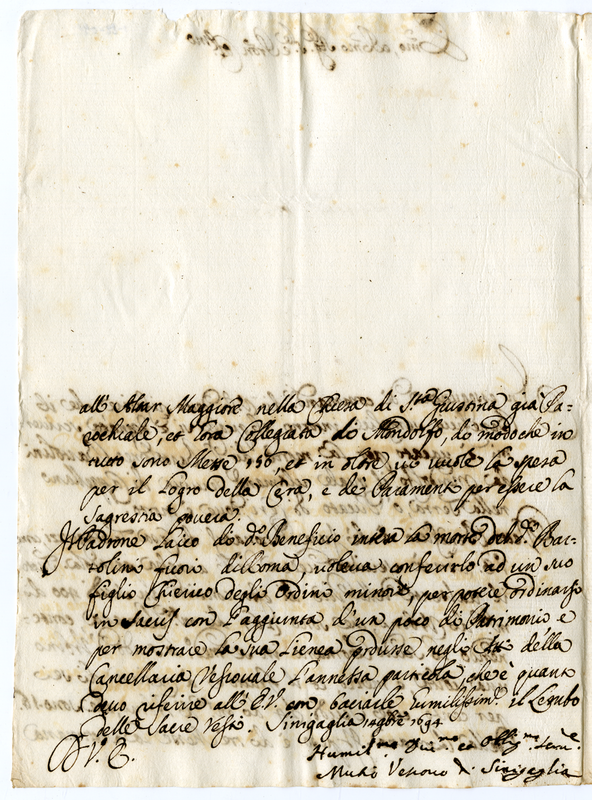 all' Altar Maggiore nella Chiesa di S.ta Giustina già Pa=
rochiale, et hora Collegiata di Mondolfo, di modo che in
tutto sono Messe 150, et in oltre ui uuole la spesa
per il logro della Cera, e de Paramenti per essere la
Sagrestia pouera.
Il Padrone Laico di d.o Beneficio intesa la morte del d.o Bar=
tolini fuori di Roma, uoleua conferirlo ad un suo
figlio Chierico degli Ordini minori, per potere ordinarsi
in Sacris con l'aggiunta, d'un poco di Patrimonio e
per mostrare la sua Lienea produsse negli Atti della
Cancellaria Vescouale l'annessa particola, che è quanto
deuo riferire all' E.V. con baciarle humilissim.e il Lembo
delle Sacre Vesti. Sinigaglia 14 9bre 1694
D. V. E.
Humil.mo Diu.mo et Obblig.mo Seru.e
Vescouo di Sinigaglia